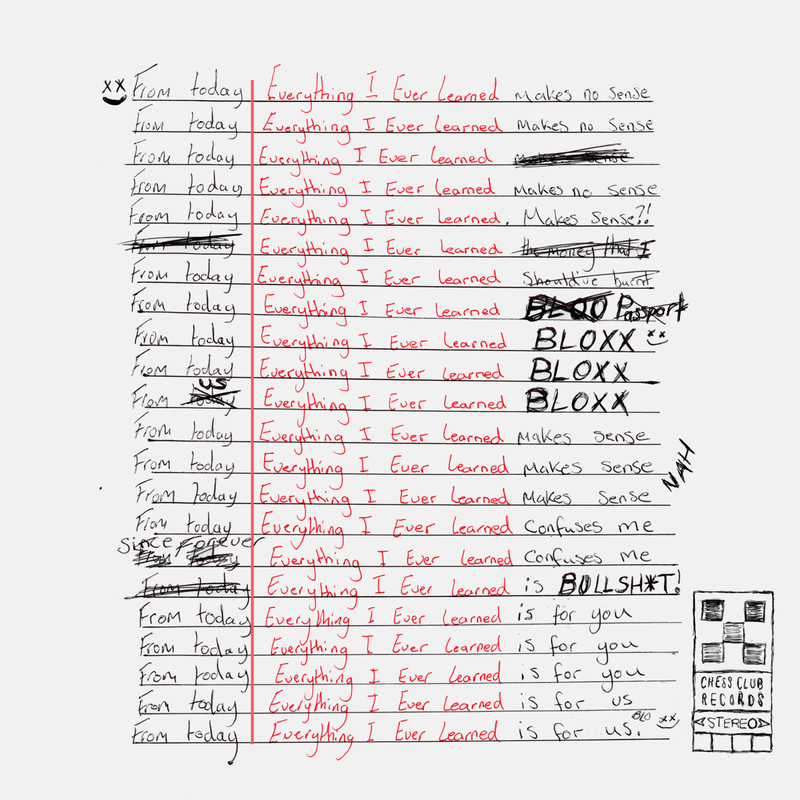 From today Everything I Ever learned makes no sense
From today Everything I Ever learned Makes no sense
From today Everything I Ever learned Makes sense
From today Everything I Ever learned makes no sense
From today Everything I Ever learned. Makes sense?!
From today Everything I Ever learned the money that I
From today Everything I Ever learned Should've burnt
From today Everything I Ever learned BLOO Passport
From today Everything I Ever learned BLOXX
From today Everything I Ever learned BLOXX
US
From today Everything I Ever learned BLOXX
From today Everything I Ever learned makes sense
From today Everything I Ever learned makes sense
NAH
From today Everything I Ever learned Makes sense
From today Everything I Ever learned Confuses me
Since Forever
From today Everything I Ever learned Confuses me
From today Everything I Ever learned is BULLSH*T!
From today Everything I Ever learned is for you
From today Everything I Ever learned is for you
From today Everything I Ever learned is for you
From today Everything I Ever learned is for us
BLO
From today Everything I Ever learned is for us.
CHESS CLUB
RECORDS
STEREO